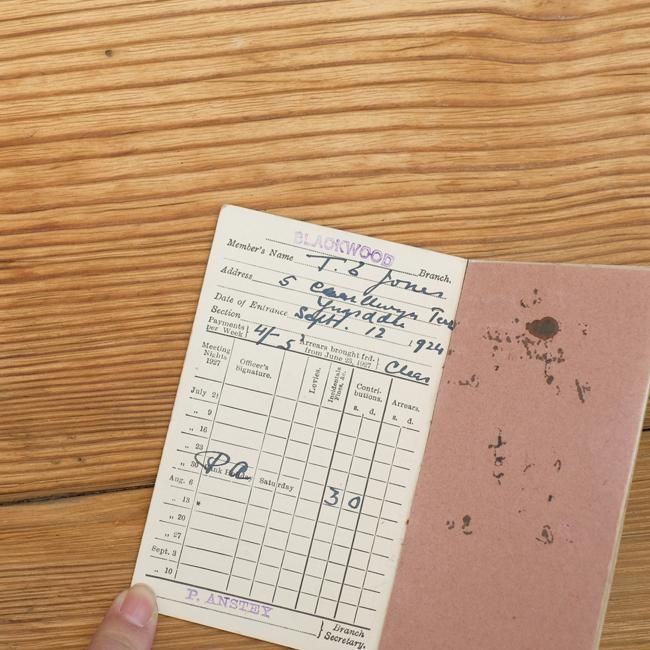 BLACKWOOD Branch.
Member's Name T. Jones
Address 5
Date of Entrance Sept. 12 1924
Section
Payments per Week } 4/- 5 Arrears brought frd. from June 25, 1927 } Clear
Meeting Nights 1927 Officer's Signature. Levies. Incidentals Fines, &c. Contributions. Arrears.
s. d. s. d.
July 2
„ 9
„ 16
„ 23
„ 30
Aug. 6 Bank Holiday Saturday
„ 13 * 3 0
„ 20
„ 27
Sept. 3
„ 10
P. ANSTEY } Branch Secretary.